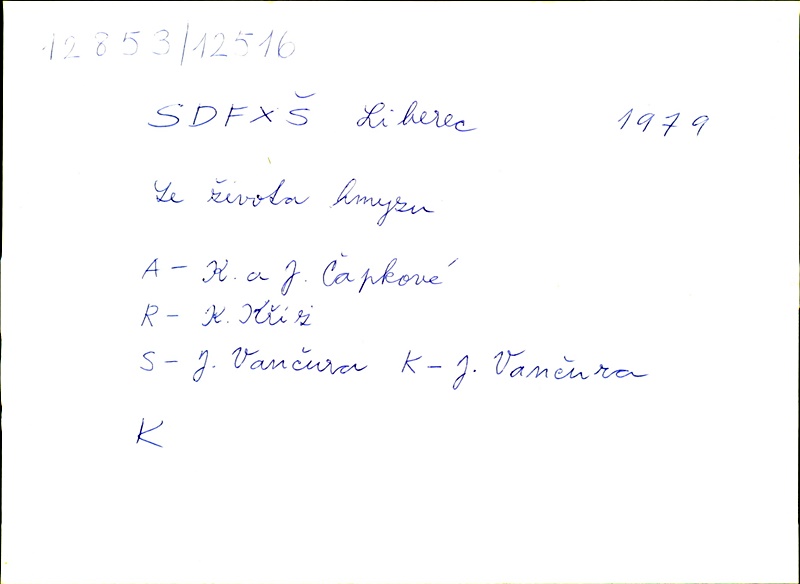 12853/12516
SDFXŠ Liberec 1979
Ze života hmyzu
A - K. a J. Čapkové
R - K. Kříž
S - J. Vančura K - J. Vančura
K